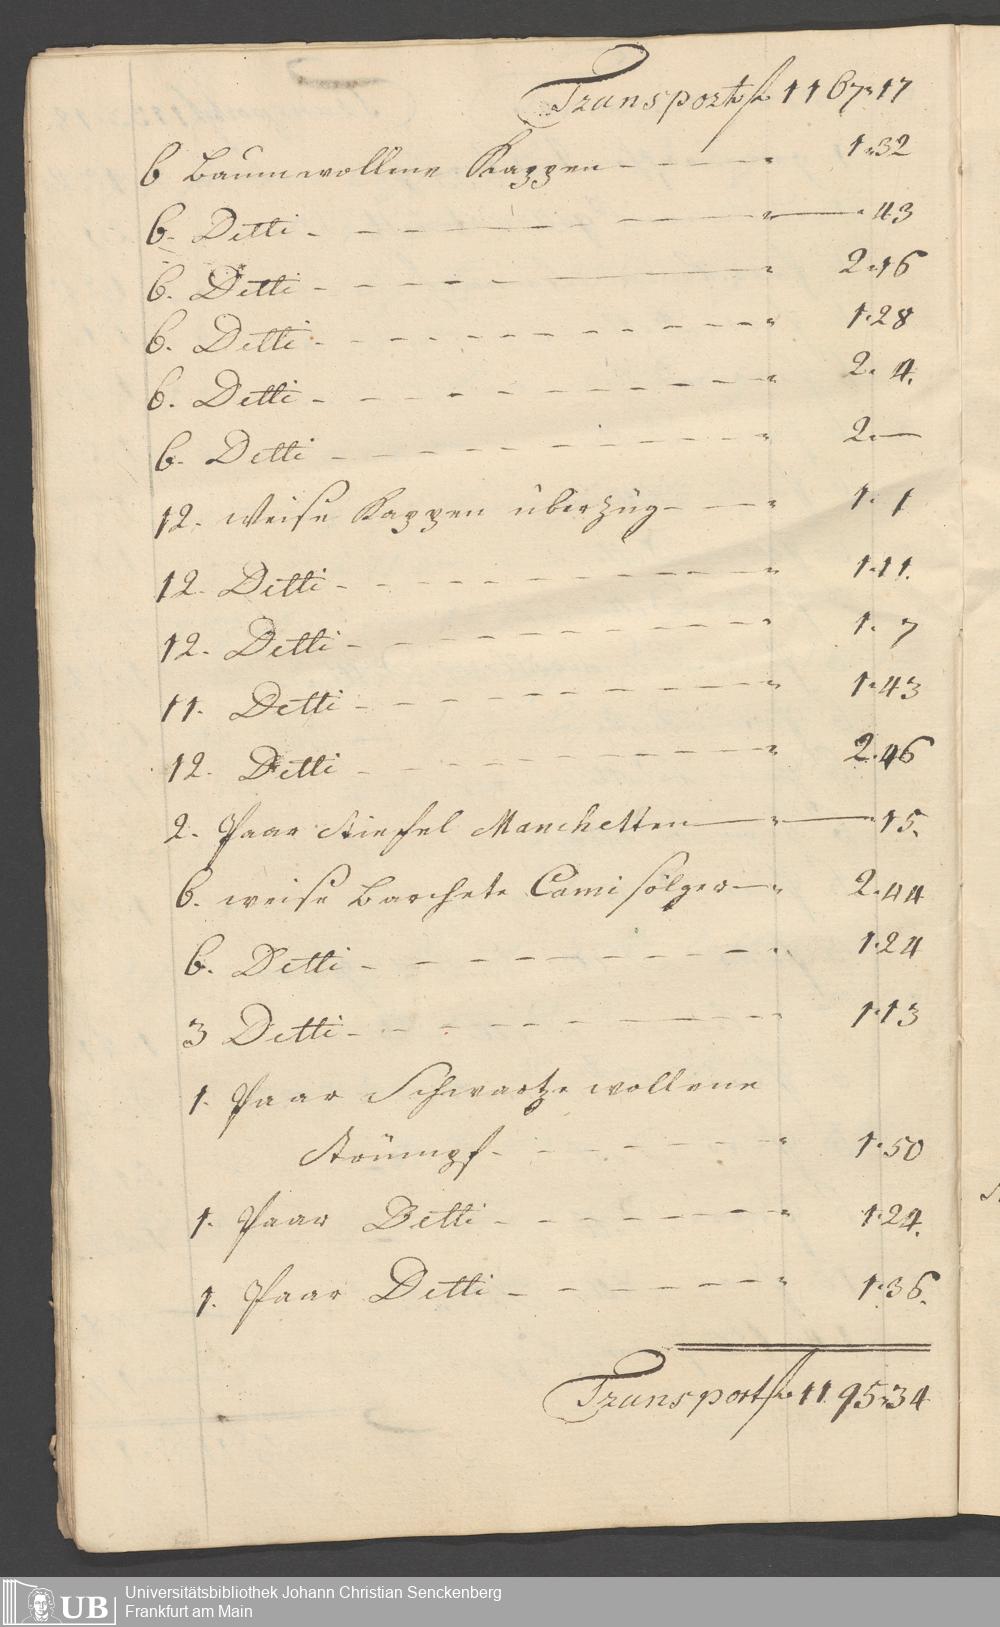 Transport f 1167 17
6 Baumwollene Kappen - - - - " 1 32
6. Detti - - - - - " 43
6. Detti - - - - - " 2 16
6. Detti - - - - - " 1 28
6. Detti - - - - - " 2. 4.
6. Detti - - - - - " 2. —
12. Weise Kappen überzüg - - - " 1. 1
12. Detti - - - - - " 1 11.
12. Detti - - - - - " 1. 7
11. Detti - - - - - " 1 43
12. Detti - - - - - " 2. 46
2. Paar Stiefel Manchetten — " — 15.
6. weise Barchete Camisölger — " 2. 44
6. Detti - - - - - " 1 24
3 Detti - - - - - " 1 13
1. Paar Schwartze wollene
Strümpf - - - - " 1. 50
1. Paar Detti - - - - " 1 24.
1. Paar Detti - - - - " 1. 36.
Transport f 1195 34
UB Universitätsbibliothek Johann Christian Senckenberg
Frankfurt am Main